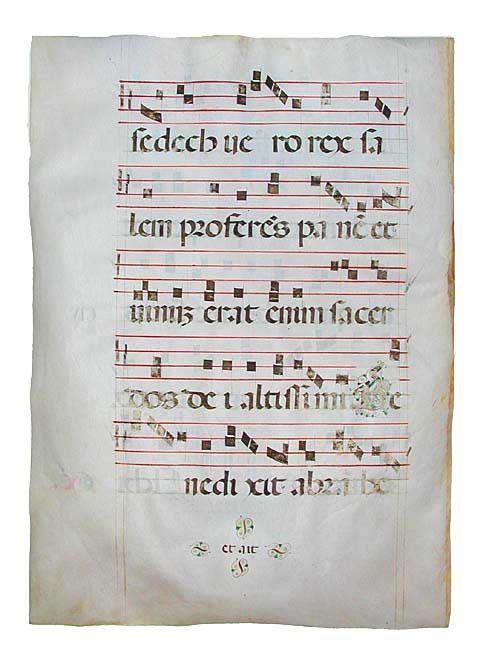 sedech ue ro rex sa
lem proferēs pa nē et
uinuʒ erat enim sacer
dos de i altissimi et be
nedi xit abrā he
et ait